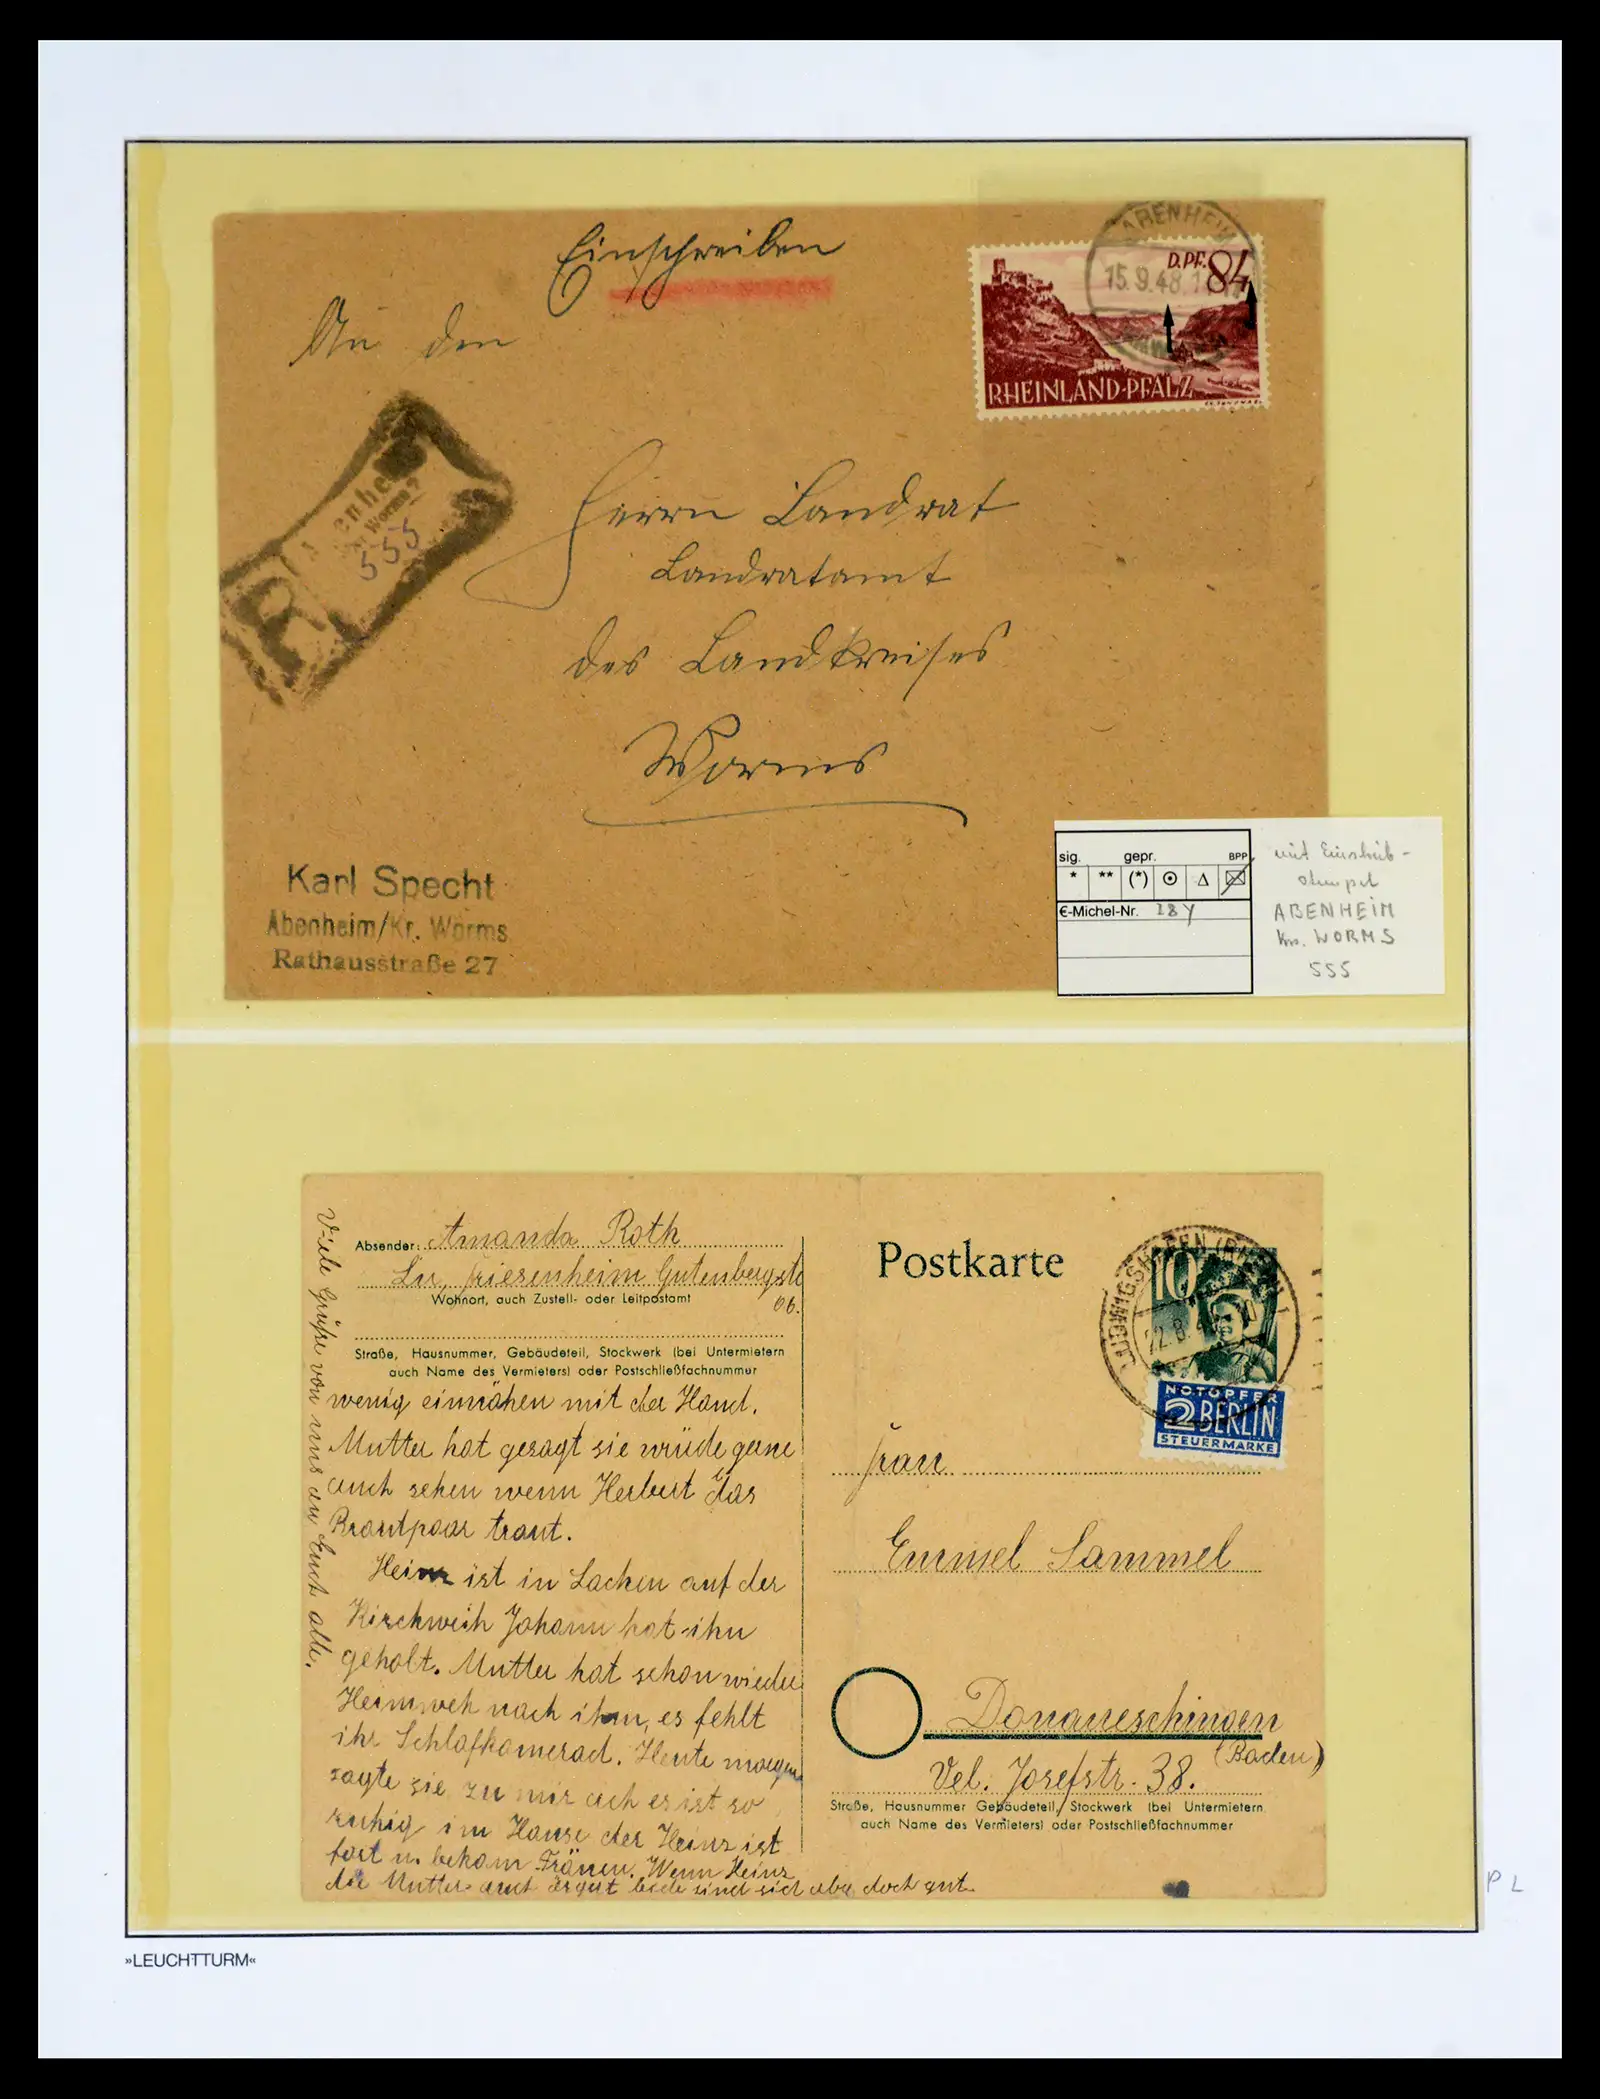 Einschreiben
An den
ABENHEIM
15.9.48.
D.PF. 84
RHEINLAND-PFALZ
R
enhe
Worms
555
Herrn Landrat
Landratamt
des Landkreises
Worms
Karl Specht
Abenheim/Kr. Worms
Rathausstraße 27
sig. gepr. BPP
* ** (*) ⊙ Δ
€-Michel-Nr. 28 y
mit Einschreib-
stempel
ABENHEIM
Krs. WORMS
555
Viele Grüße von uns an Euch alle.
Absender: Amanda Roth
Lu, Friesenheim Gutenbergstr
66.
Wohnort, auch Zustell- oder Leitpostamt
Straße, Hausnummer, Gebäudeteil, Stockwerk (bei Untermietern
auch Name des Vermieters) oder Postschließfachnummer
wenig einnähen mit der Hand.
Mutter hat gesagt sie würde gerne
auch sehen wenn Herbert das
Brautpaar traut.
Heinz ist in Lachen auf der
Kirchweih Johann hat ihn
geholt. Mutter hat schon wieder
Heimweh nach ihm, es fehlt
ihr Schlafkamerad. Heute morgen
sagte sie zu mir ach es ist so
ruhig im Hause der Heinz ist
fort u. bekam Tränen. Wenn Heinz
die Mutter auch ärgert beide sind sich aber doch gut.
Postkarte
LUDWIGSHAFEN (RHEIN) 1
22.8.
10
NOTOPFER
2 BERLIN
STEUERMARKE
Frau
Emmel Sammel
Donaueschingen
(Baden)
Vel. Josefstr. 38.
Straße, Hausnummer Gebäudeteil, Stockwerk (bei Untermietern
auch Name des Vermieters) oder Postschließfachnummer
P L
»LEUCHTTURM«